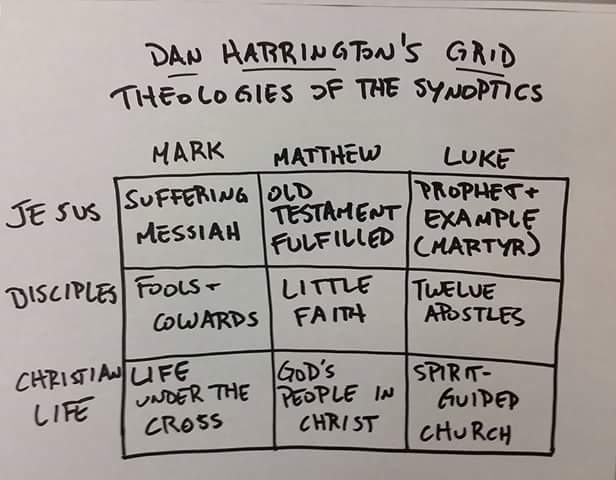 DAN HARRINGTON'S GRID
THEOLOGIES OF THE SYNOPTICS
MARK MATTHEW LUKE
JESUS
SUFFERING
MESSIAH
OLD
TESTAMENT
FULFILLED
PROPHET +
EXAMPLE
(MARTYR)
DISCIPLES
FOOLS +
COWARDS
LITTLE
FAITH
TWELVE
APOSTLES
CHRISTIAN
LIFE
LIFE
UNDER THE
CROSS
GOD'S
PEOPLE IN
CHRIST
SPIRIT-
GUIDED
CHURCH